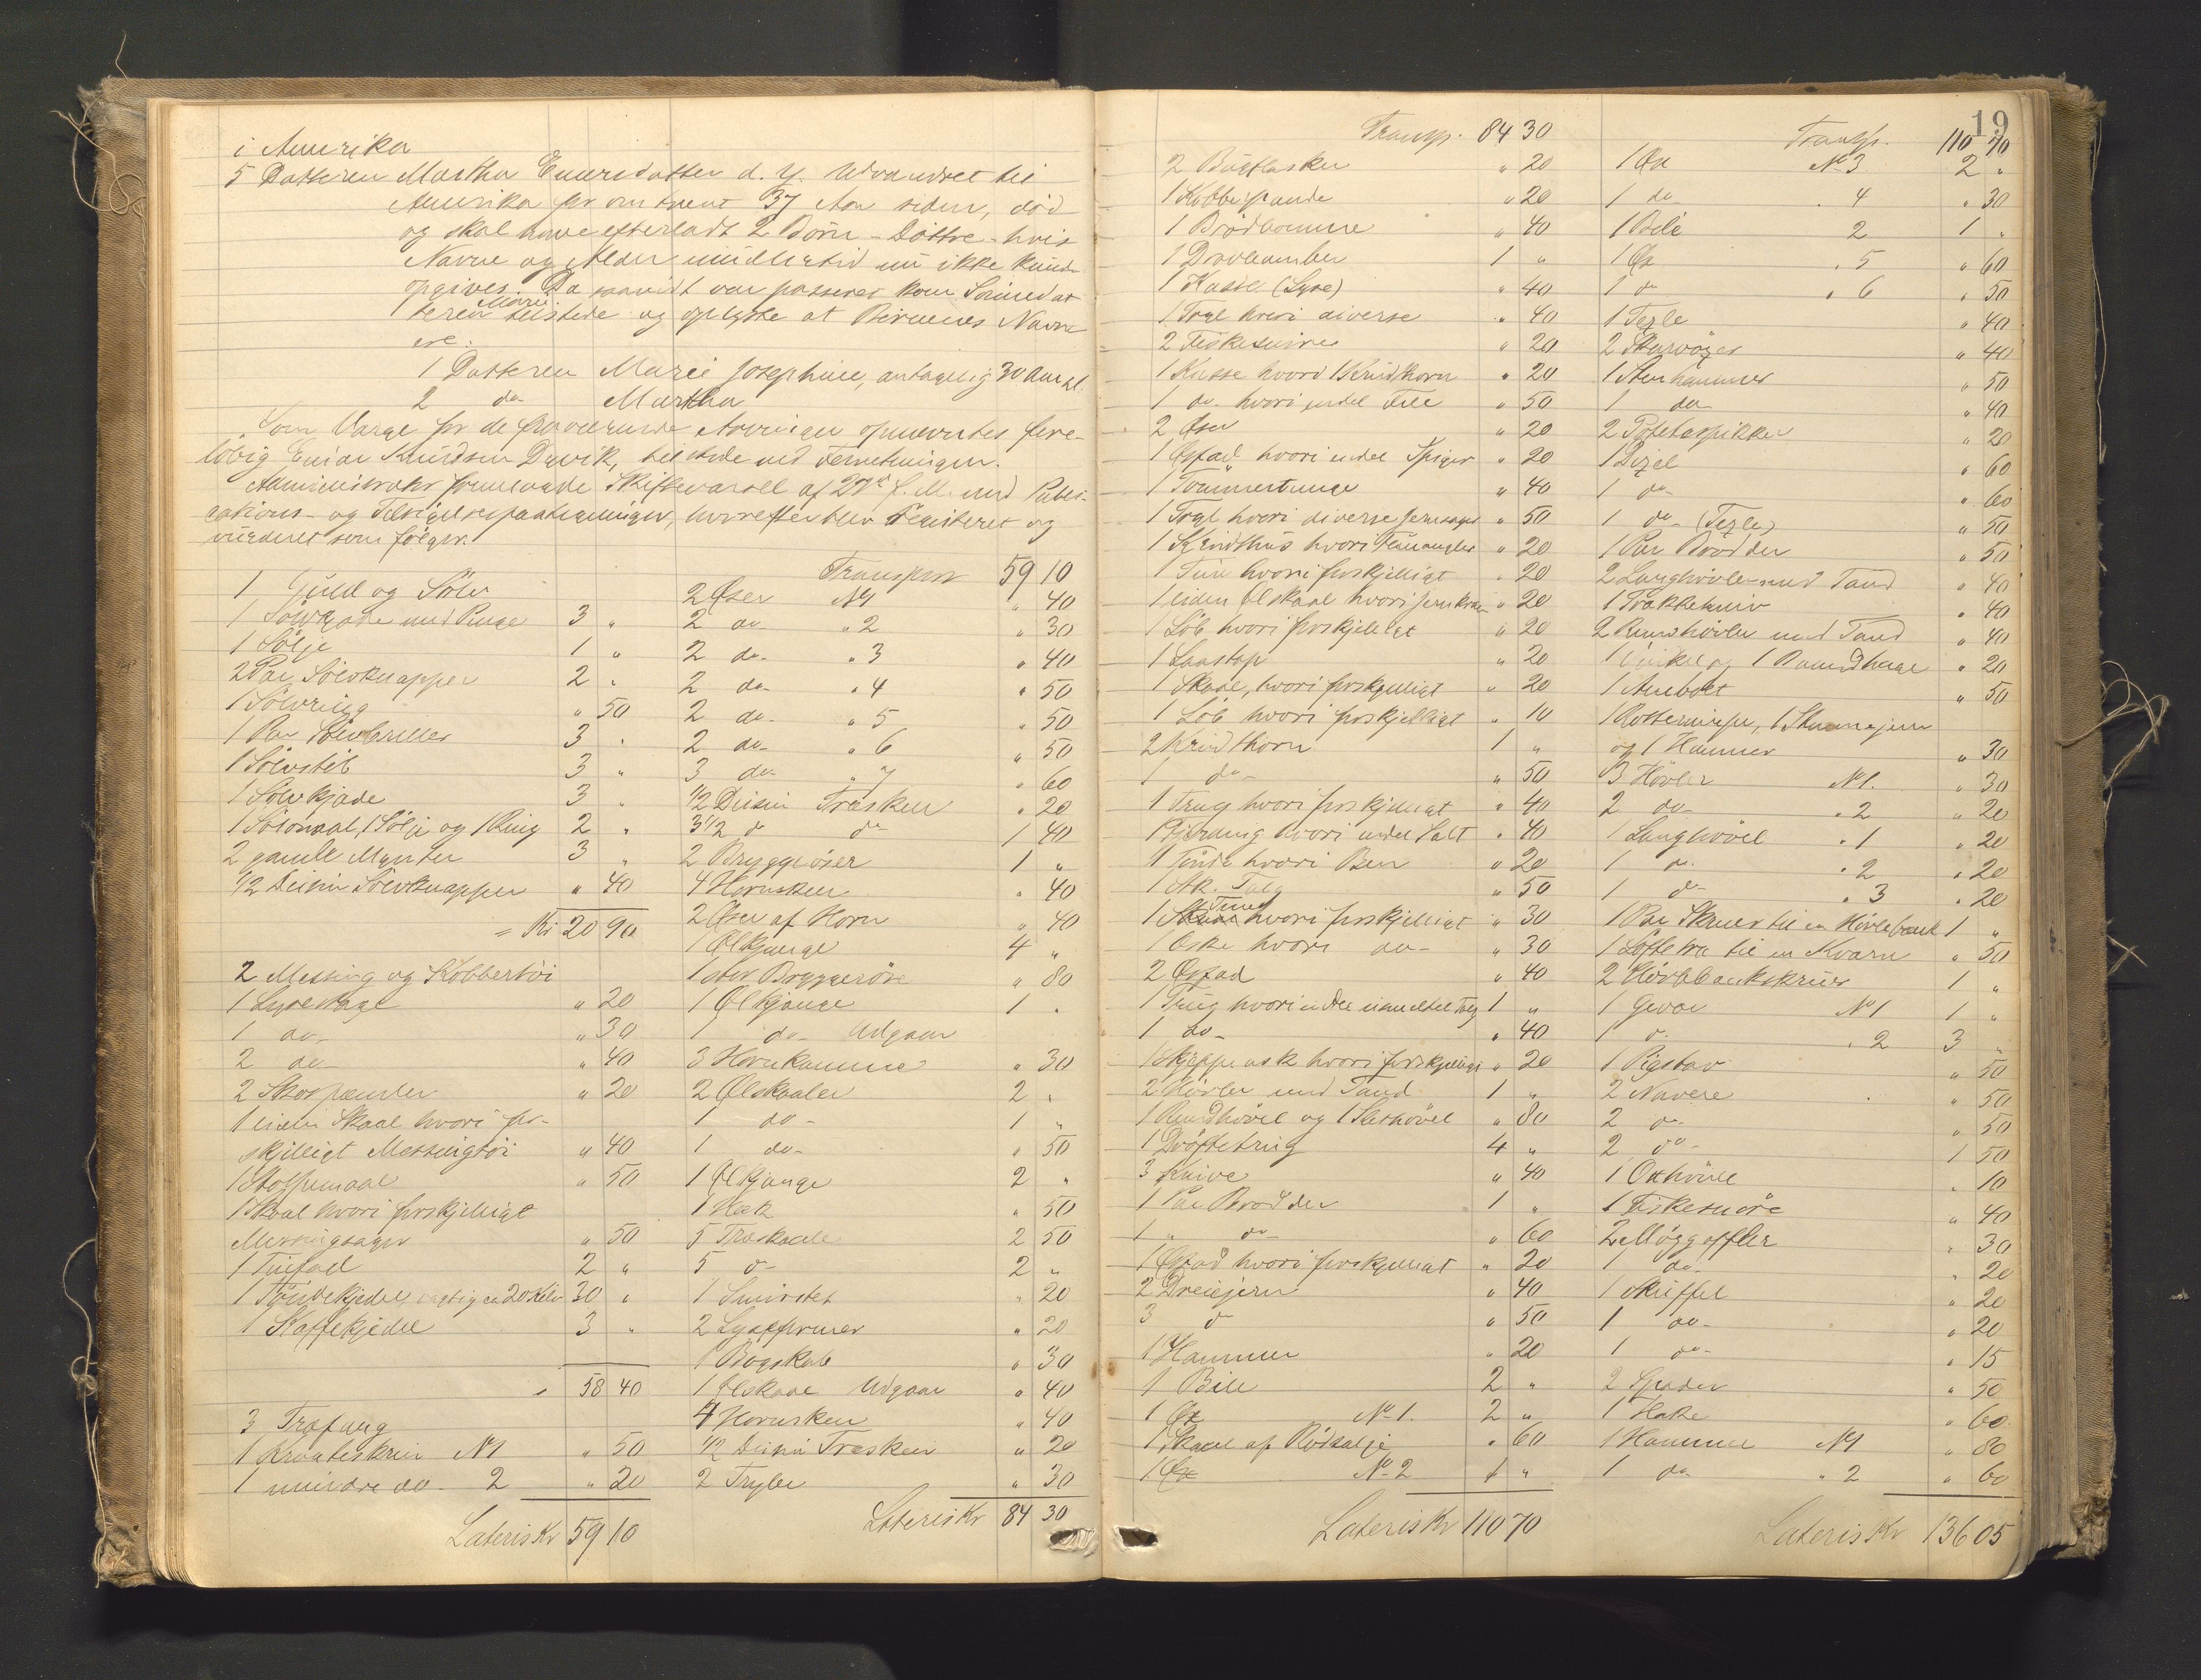 i Amerika
5 Datteren Martha Einersdatter d. y. Udvandret til
Amerika for omtrent 37 Aar siden, død
og skal have efterladt 2 Børn - Døttre - hvis
Navne og Alder imidlertid nu ikke kunde
opgives. Da saavidt var passeret kom Sønnedat
teren Marie tilstede og oplyste at Børnenes Navne
ere:
1 Datteren Marie Josephine, antagelig 30 Aar gl.
2 do Martha
Som Værge for de fraværende Arvinger opnævntes fore-
løbig Einar Knudsen Dyvik, tilstede ved Forretningen.
Administrator fremlagde Skiftevarsel af 27de f. M. med Publi-
cations- og Tilsigelsespaategninger, hvorefter blev registeret og
vurderet som følger:
1 Guld og Sølv
1 Sølvgode med Punge 3 "
1 Sølje 1 "
2 Par Sølvknapper 2 "
1 Sølvring " 50
1 Par Sølvbriller 3 "
1 Sølvstøb 3 "
1 Sølvkjæde 3 "
1 Sølvnaal, 1 Sølje og 1 Ring 2 "
2 gamle Mynter 3 "
1/2 Dusin Sølvknapper " 40
= Kr 20 90
2 Messing og Kobbertøi
1 Lysestage " 20
1 do " 30
2 do " 40
2 Skospænder " 20
1 liden Skaal hvori for-
skjelligt Messingtøi " 40
1 Stolpemaal " 50
1 Skaal hvori forskjelligt
Messingsager " 50
1 Tinfad 2 "
1 Tøndekjedel, vægtig ca 20 Kilo 30 "
1 Kaffekjedel 3 "
58 40
3 Træfang
1 Kravteskrin No 1 " 50
1 mindre do 2 " 20
Lateris Kr 59 10
Transport 59 10
2 Øser No 1 " 40
2 do " 2 " 30
2 do " 3 " 40
2 do " 4 " 50
2 do " 5 " 50
2 do " 6 " 50
3 do " 7 " 60
1/2 Dusin Træskeer " 20
3 1/2 d do 1 40
2 Bryggeøser 1 "
4 Hornskeer " 40
2 Øser af Horn " 40
1 Ølkjønge 4 "
1 stor Bryggerøse " 80
1 Ølkjønge 1 "
1 do Udgaar
3 Hornkamme " 30
2 Ølskaaler 2 "
1 do 1 "
1 do " 50
1 Ølkjønge 2 "
1 Hæk " 50
5 Træskaale 2 50
5 do 2 "
1 Smørstet " 20
2 Lyseformer " 20
1 Bogskab " 30
1 Ølskaal Udgaar " 40
4 Hornskeer " 40
1/2 Dusin Træskeer " 20
2 Tryler " 30
Lateris Kr 84 30
Transp. 84 30
2 Bugflasker " 20
1 Kobberpande " 20
1 Brødkomme " 40
1 Dravleamber 1 "
1 Kasse (Lyse) " 40
1 Trug hvori diverse " 40
2 Fiskesnører " 20
1 Kasse hvori 1 Krudthorn " 20
1 do hvori endel File " 50
2 Øser " 20
1 Østad hvori endel Spiger " 20
1 Tømmertunge " 40
1 Trug hvori diverse Jernsager " 50
1 Krudthus hvori Flueangler " 20
1 Tine hvori forskjelligt " 20
1 liden Ølskaal hvori jernkroer " 20
1 Løb hvori forskjelligt " 20
1 Laastap " 20
1 Skaal, hvori forskjelligt " 20
1 Løb hvori forskjelligt " 10
2 Krudthorn 1 "
1 do " 50
1 Trug hvori forskjelligt " 40
1 Fjerding hvori endel Salt " 40
1 Tønde hvori Ben " 20
1 Stk. Talg " 50
1 Tine hvori forskjelligt " 30
1 Øske hvori do " 30
2 Østad " 40
1 Trug hvori endel usmeltet Talg 1 "
1 do " 40
1 Skjeppeask hvori forskjelligt " 20
2 Høvler med Tand 1 "
1 Rundhøvel og 1 Sletshøvel " 80
1 Drøftetrug 4 "
3 Knive " 40
1 Par Brodder 1 "
1 " do " 60
1 Østad hvori forskjelligt " 20
2 Dreiejern " 40
3 do " 50
1 Hammer " 20
1 Bile 2 "
1 Øx No 1. 2 "
1 Skaal af Rødselje " 60
1 Øx No 2 1 "
Lateris Kr 110 70
19
Transp. 110 70
1 Øx No 3 2 "
1 do " 4 " 30
1 Bile 2 1 "
1 Øx " 5 " 60
1 do " 6 " 50
1 Texle " 40
2 Skarøxer " 40
1 Stenhammer " 50
1 do " 40
2 Potetespikker " 20
1 Dexel " 60
1 do " 60
1 do (Texle) " 50
1 Par Brodder " 50
2 Langhøvle med Tand " 40
1 Trækkekniv " 40
2 Rundhøvler med Tand " 40
1 Vinkel og 1 Baandhage " 20
1 Ambolt " 50
1 Rottenippe, 1 Stemmejern
og 1 Hammer " 30
3 Høvler No 1. " 30
2 do " 2 " 20
1 Langhøvel " 1 " 20
1 do " 2 " 20
1 do " 3 " 20
1 Par Skruer til en Høvlebænk 1 "
1 Løftetræ til en Kværn " 50
2 Høvlbænkskruer 1 "
1 Gevær No 1 1 "
1 do " 2 3 "
1 Pigstav " 50
2 Navere " 50
2 do " 50
2 do 1 50
1 Oxhvile " 10
1 Fiskesnøre " 40
2 Møggafler " 30
1 do " 20
1 Skuffel " 20
1 do " 20
1 do " 15
2 Spader " 50
1 Hake " 60
1 Hammer No 1 " 80
1 do " 2 " 60
Lateris Kr 136 05